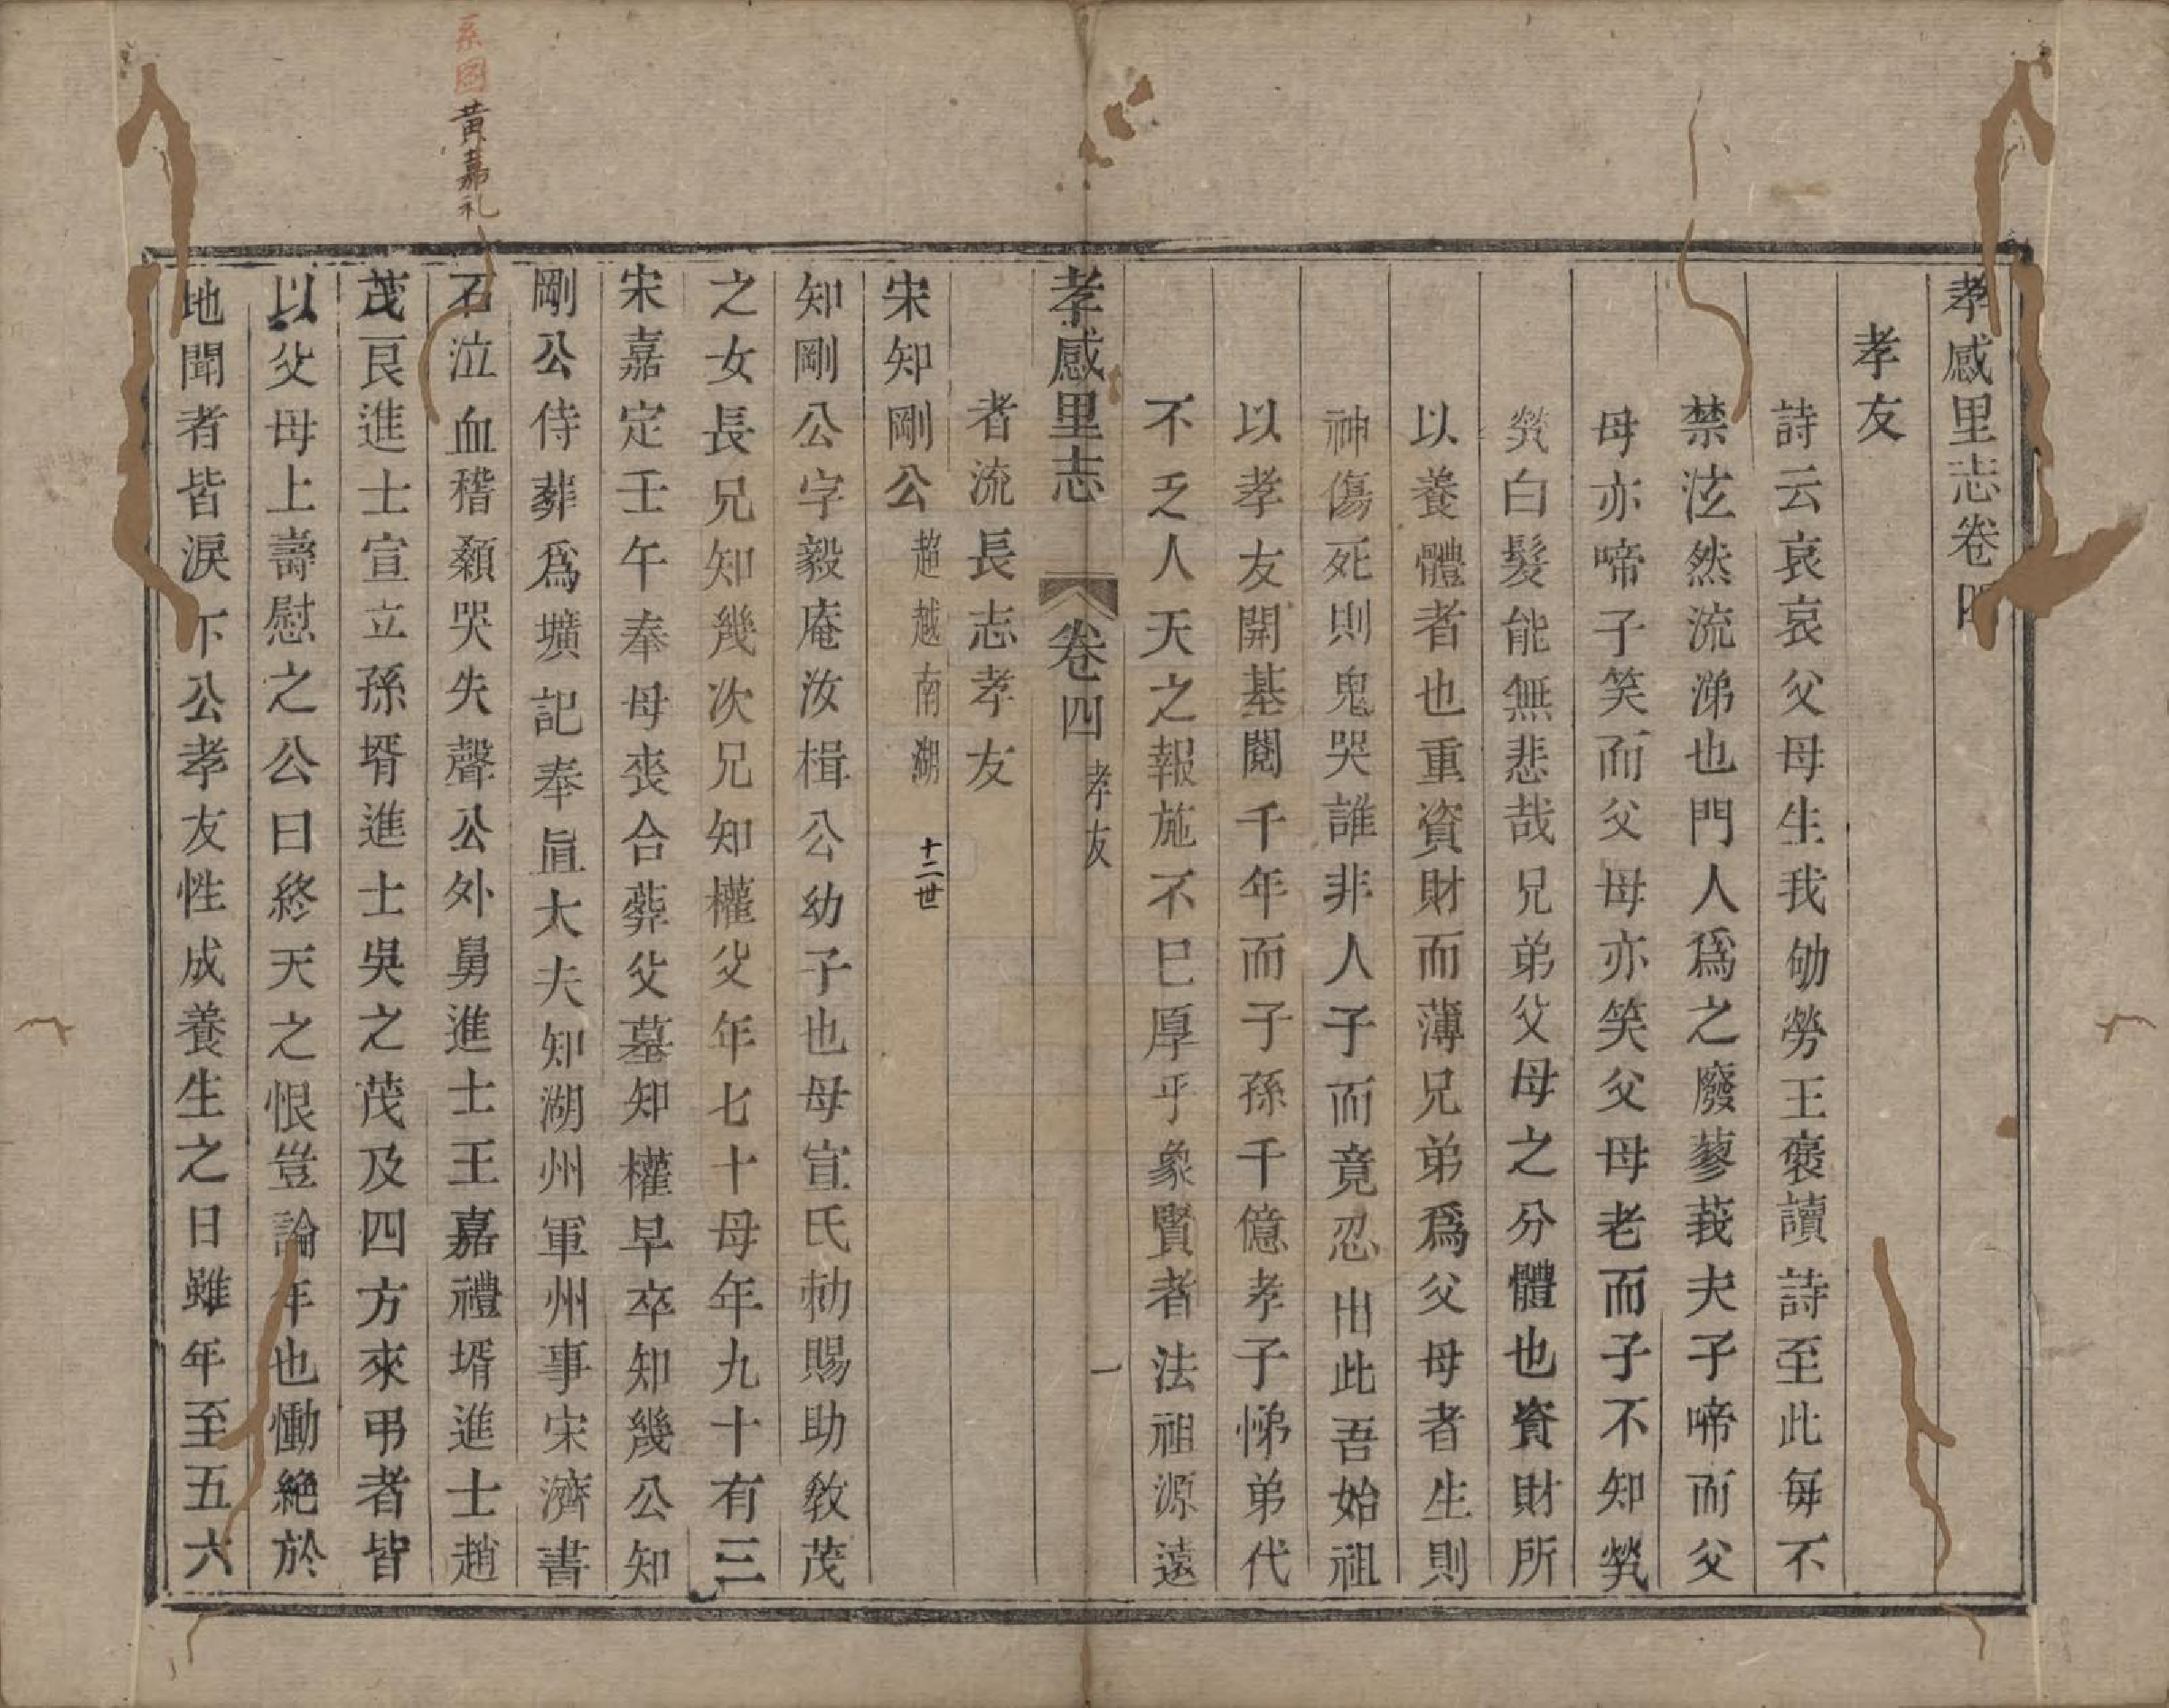 孝感里志卷四
孝友
詩云哀哀父母生我劬勞王裒讀詩至此每不
禁泫然流涕也門人爲之廢蓼莪夫子啼而父
母亦啼子笑而父母亦笑父母老而子不知煢
煢白髮能無悲哉兄弟父母之分體也資財所
以養體者也重資財而薄兄弟爲父母者生則
神傷死則鬼哭誰非人子而竟忍出此吾始祖
以孝友開基閱千年而子孫千億孝子悌弟代
不乏人天之報施不已厚乎象賢者法祖源遠
孝感里志 卷四 孝友 一
者流長志孝友
宋知剛公 趙越南湖 十二世
知剛公字毅庵汝楫公幼子也母宣氏勑賜助教茂
之女長兄知幾次兄知權父年七十母年九十有三
宋嘉定壬午奉母喪合葬父墓知權早卒知幾公知
剛公侍葬爲壙記奉直大夫知湖州軍州事宋濟書
石泣血稽顙哭失聲公外舅進士王嘉禮壻進士趙
茂良進士宣立孫壻進士吳之茂及四方來弔者皆
以父母上壽慰之公曰終天之恨豈論年也慟絶於
地聞者皆淚下公孝友性成養生之日雖年至五六
系圖黄嘉礼